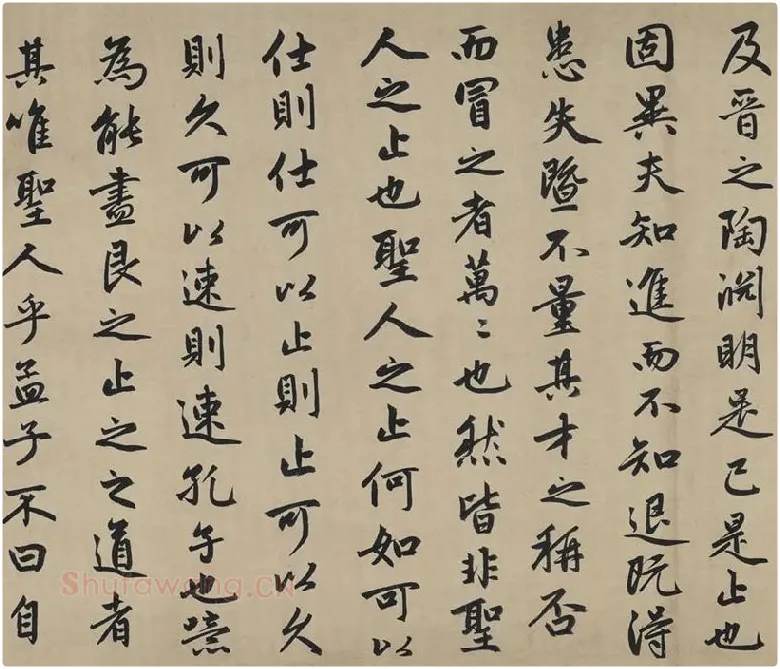 及晉之陶淵明是已是止也
固異夫知進而不知退既得
患失曁不量其才之稱否
而冒之者萬〻也然皆非聖
人之止也聖人之止何如可以
仕則仕可以止則止可以久
則久可以速則速孔子也噫
為能盡艮之止之之道者
其唯聖人乎孟子不曰自
Shufawang.CN